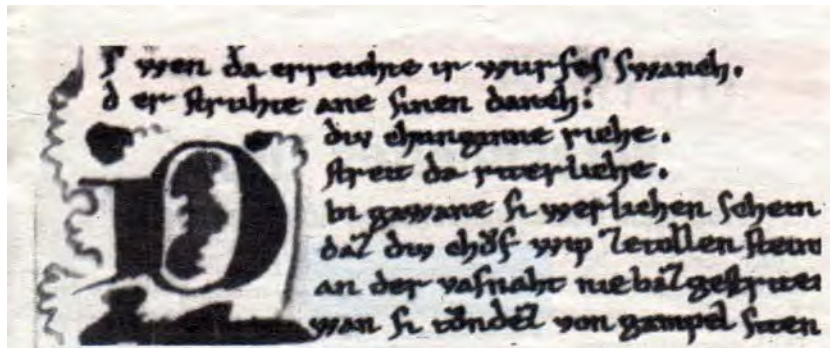 ſ wen da erreichte ir wurfeſ ſwanch.
d er ſtruhte ane ſinen danch:
diu chunginne riche.
ſtreit da riterliche.
bi gawane ſi werlichen ſchein
daz diu chŏf wip zetollen ſtein
an der vaſnaht nie baz geſtriten
wan ſi tŏndez von gampel ſiten